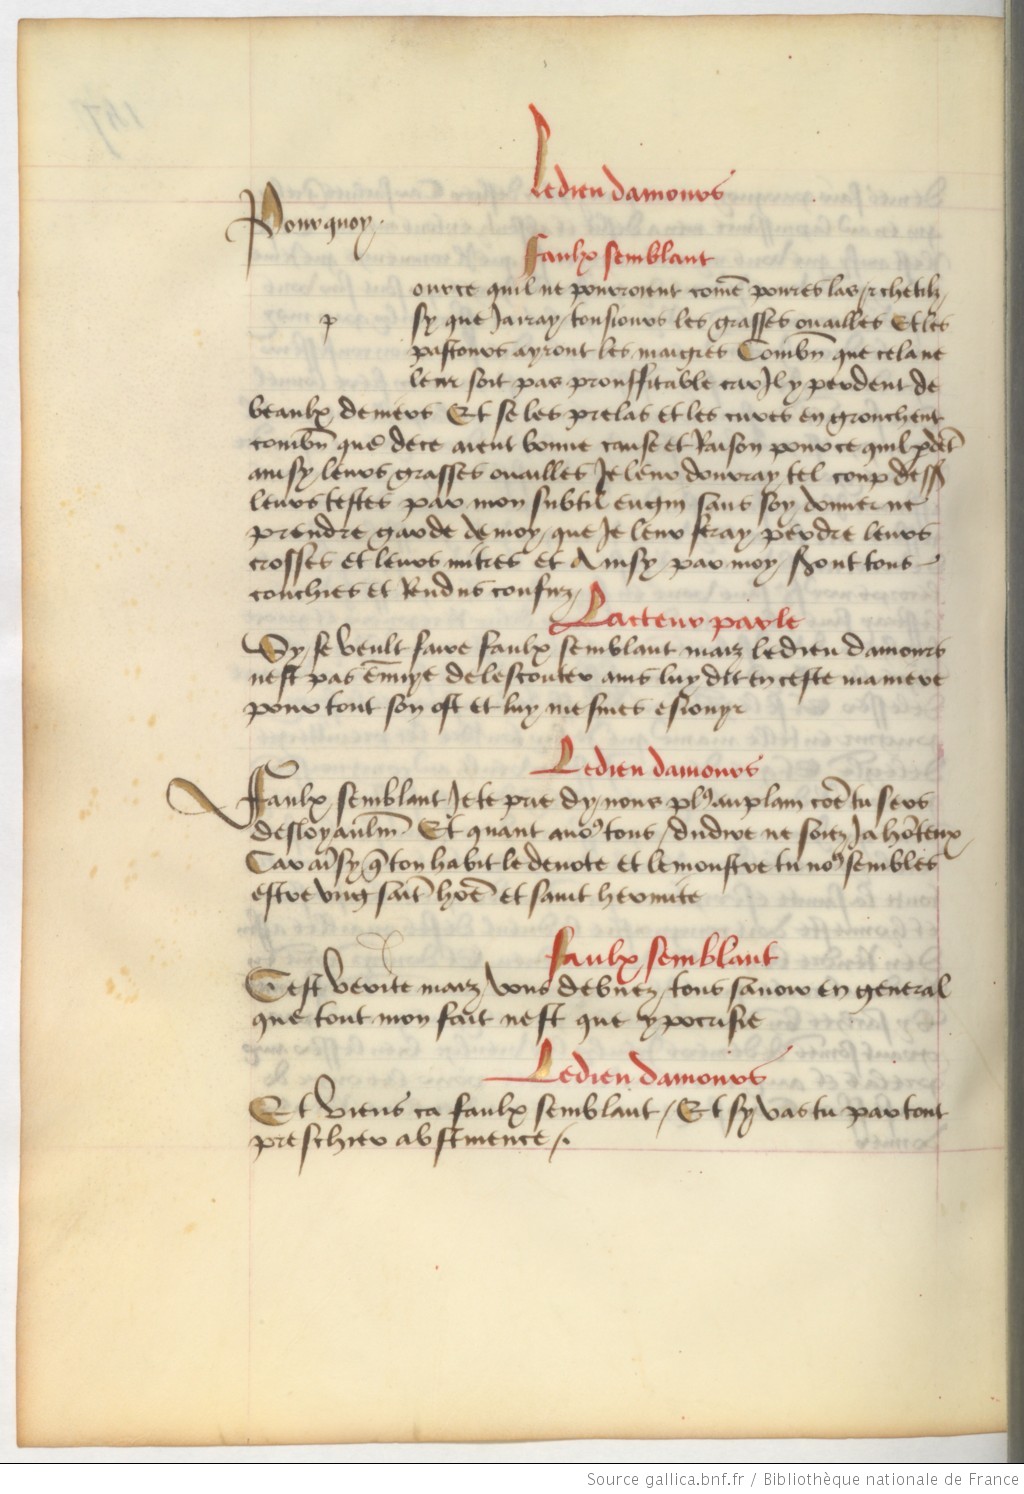 Le dieu damours
Pourquoy.
Faulx semblant
ource quil ne pourroient com̄e poures las / et chetifz /
p
sy que Jarray / tousiours les grasses ouailles Et les
pastours ayront les maigres Combn̄ que cela ne
leur soit pas prouffitable car Jl y perdent de
beaulx deniers Et se les prelas et les cures en grouchent
combn̄ que de ce aient bonne cause et Raison pource quilz pdēt
ainsy leurs grasses ouailles Je leur donrray tel coup dess
leurs testes par mon subtil engin sans soy donner ne
prendre garde de moy / que Je leur feray perdre leurs
crosses et leurs mitres et Ainsy par moy sont tous
conchies et Rendus confuz /
Lacteur parle
Sy se veult faire faulx semblant maiz le dieu damours
nest pas ēnuye de lescouter ains luy dit en ceste maniere
pour tout son ost et luy mesmes esiouyr
Le dieu damours
Faulx semblant Je te prie dy nous pl9 au plain cōe tu sers
desloyaulm̄ Et quant auo9 tous / du dire ne soiez Ja hōteux /
Car aīsy q̄ ton habit le denote et le monstre tu no9 sembles
estre ung saīt hōe et saint hermite
Faulx semblant
Cest verite maiz vous debuez / tous sauoir en general
que tout mon fait nest que ypocrisie
Le dieu damours
Et viens ca faulx semblant / Et sy vas tu par tout
preschier abstinence /.
Source gallica.bnf.fr / Bibliothèque nationale de France